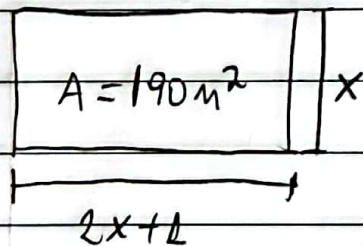 A = 190 m²
x
2x+1